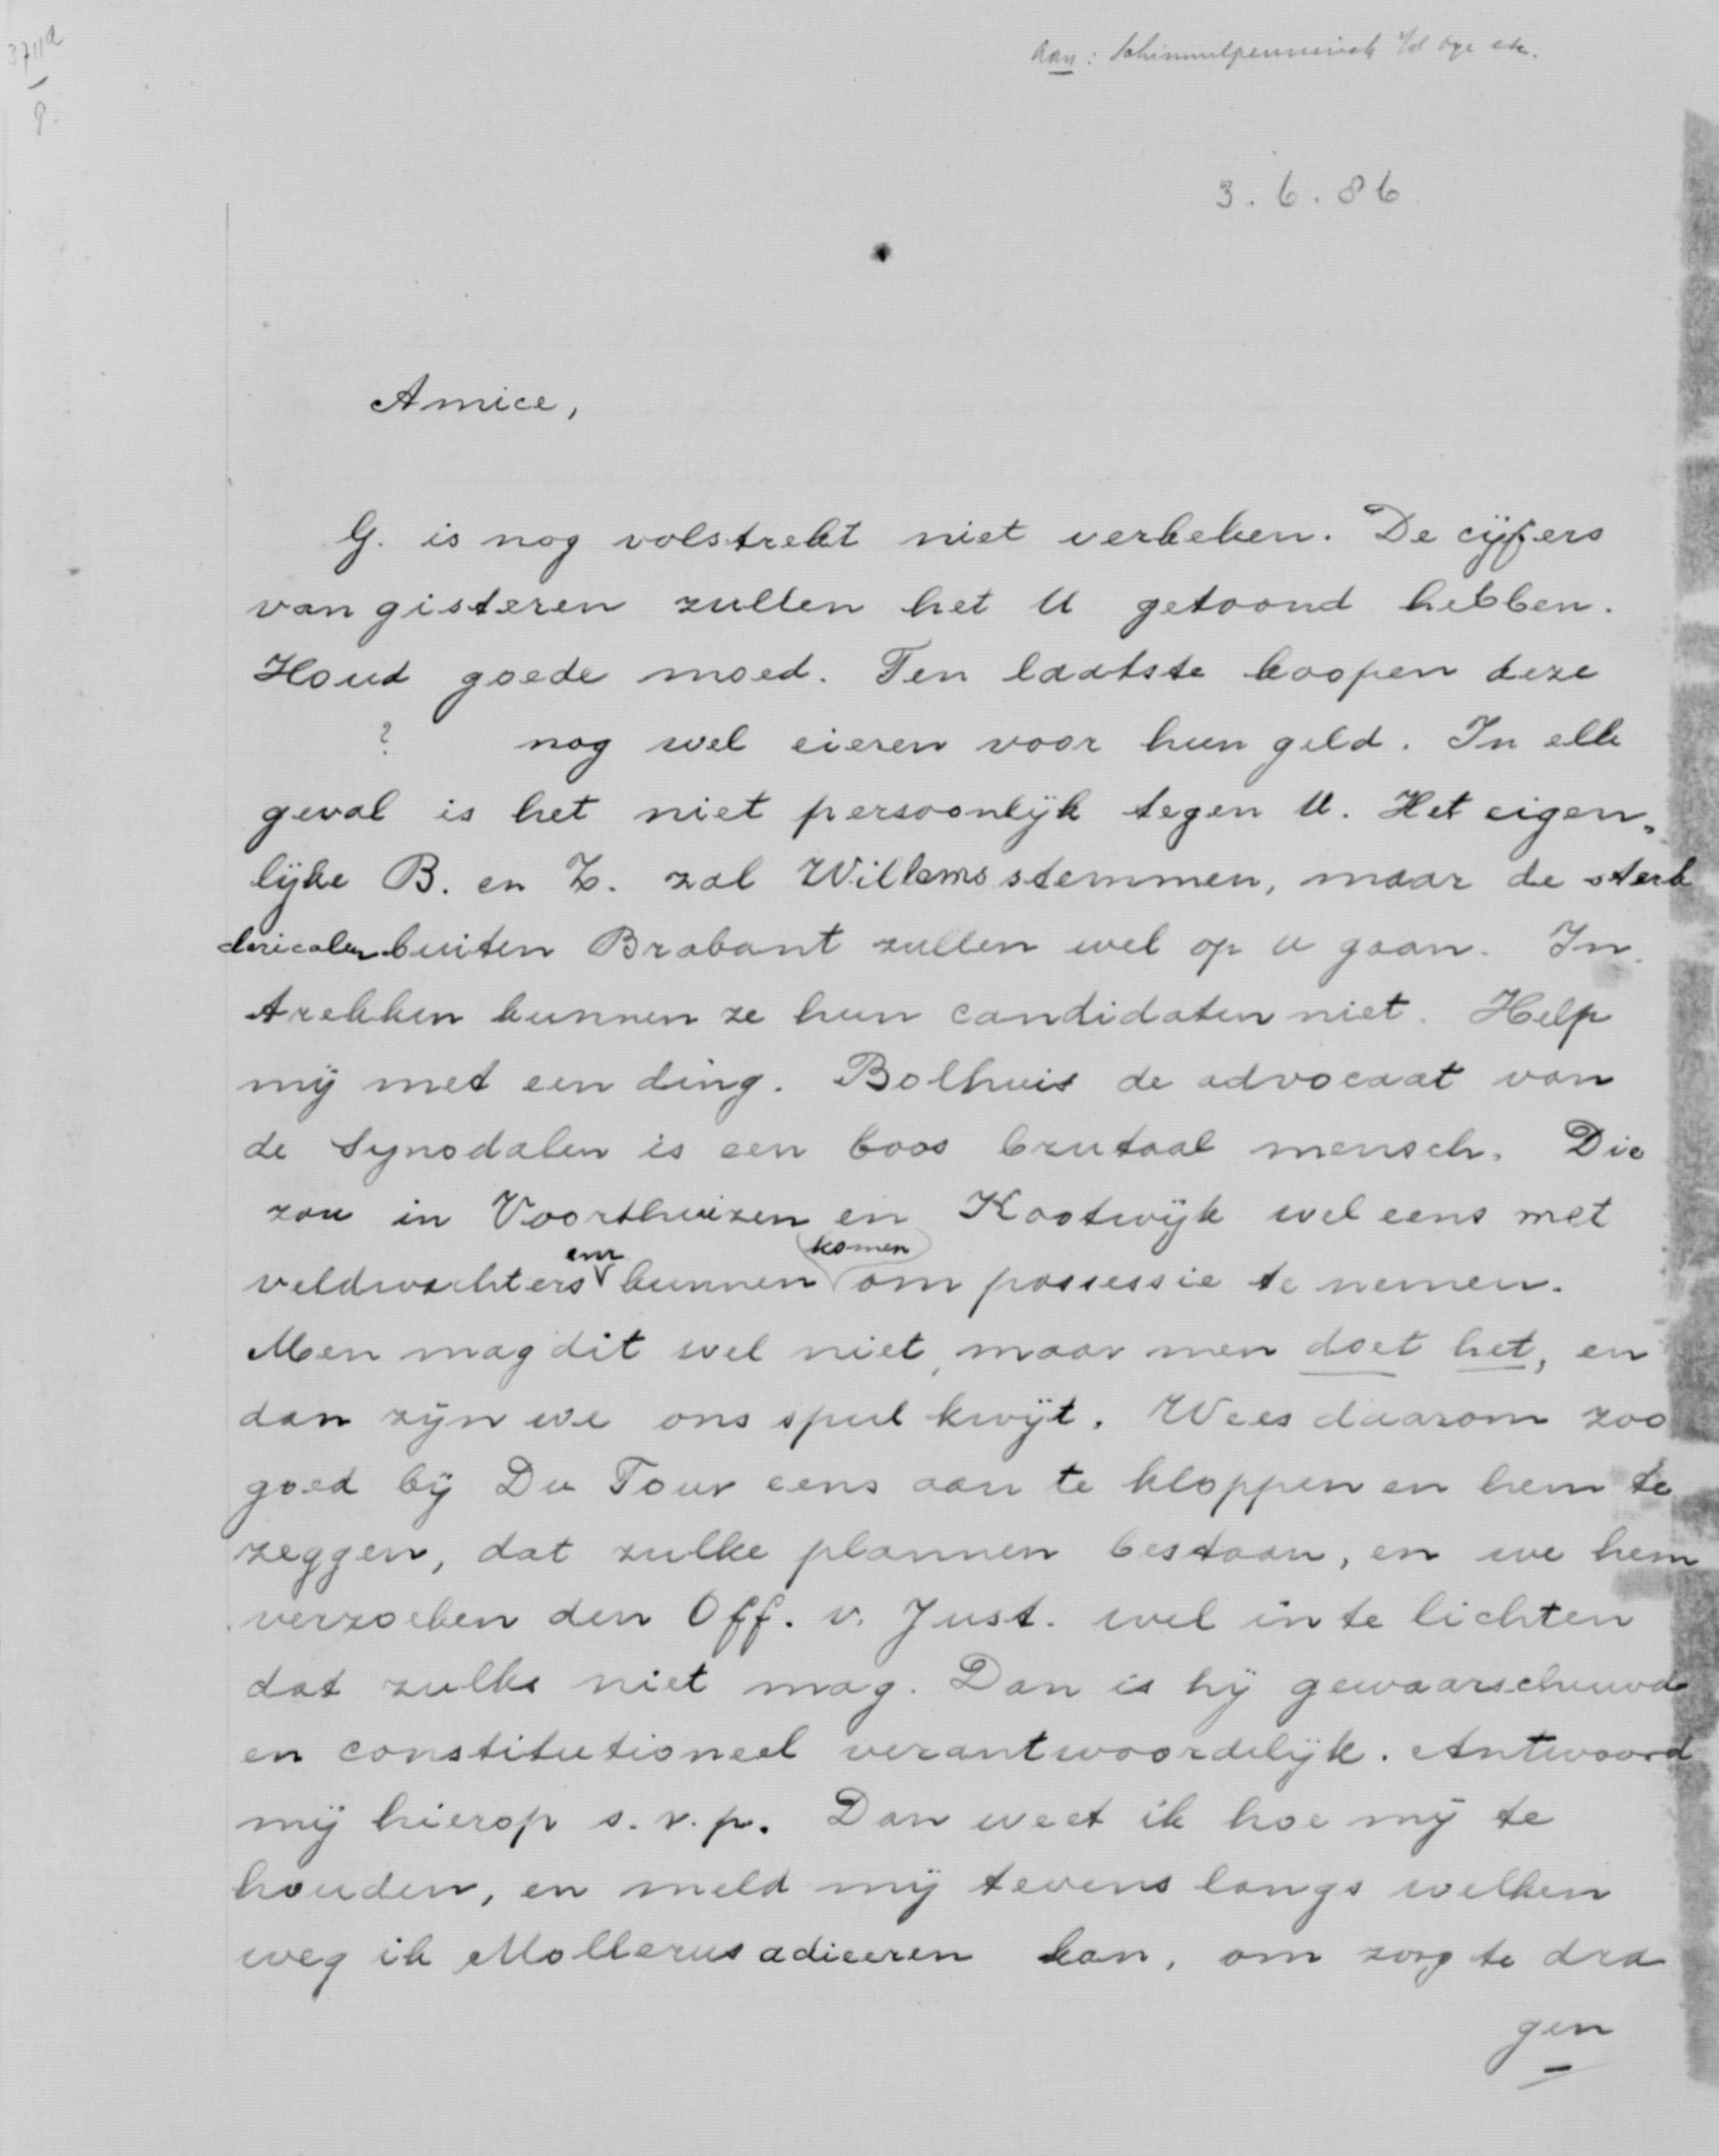 3711a
P.
Aan: Schimmelpenninck v/d Oye etc.
3.6.86
Amice,
G. is nog volstrekt niet verkeken. De cijfers
van gisteren zullen het U getoond hebben.
Houd goede moed. Ten laatste koopen deze
? nog wel eieren voor hun geld. In elk
geval is het niet persoonlijk tegen U. Het eigen„
lijke B. en Z. zal Willems stemmen, maar de sterk
clericalen buiten Brabant zullen wel op U gaan. In
trekken kunnen ze hun candidaten niet. Help
mij met een ding. Bolhuis de advocaat van
de Synodalen is een boos brutaal mensch. Die
zou in Voorthuizen en Kootwijk wel eens met
veldwachters kunnen komen om possessie te nemen.
Men mag dit wel niet, maar men doet het, en
dan zijn we ons spul kwijt. Wees daarom zoo
goed bij Du Tour eens aan te kloppen en hem te
zeggen, dat zulke plannen bestaan, en we hem
verzoeken den Off. v. Just. wel in te lichten
dat zulks niet mag. Dan is hij gewaarschuwd
en constitutioneel verantwoordelijk. Antwoord
mij hierop s.v.p. Dan weet ik hoe mij te
houden, en meld mij tevens langs welken
weg ik Mollerus adieeren kan, om zorg te dra
gen